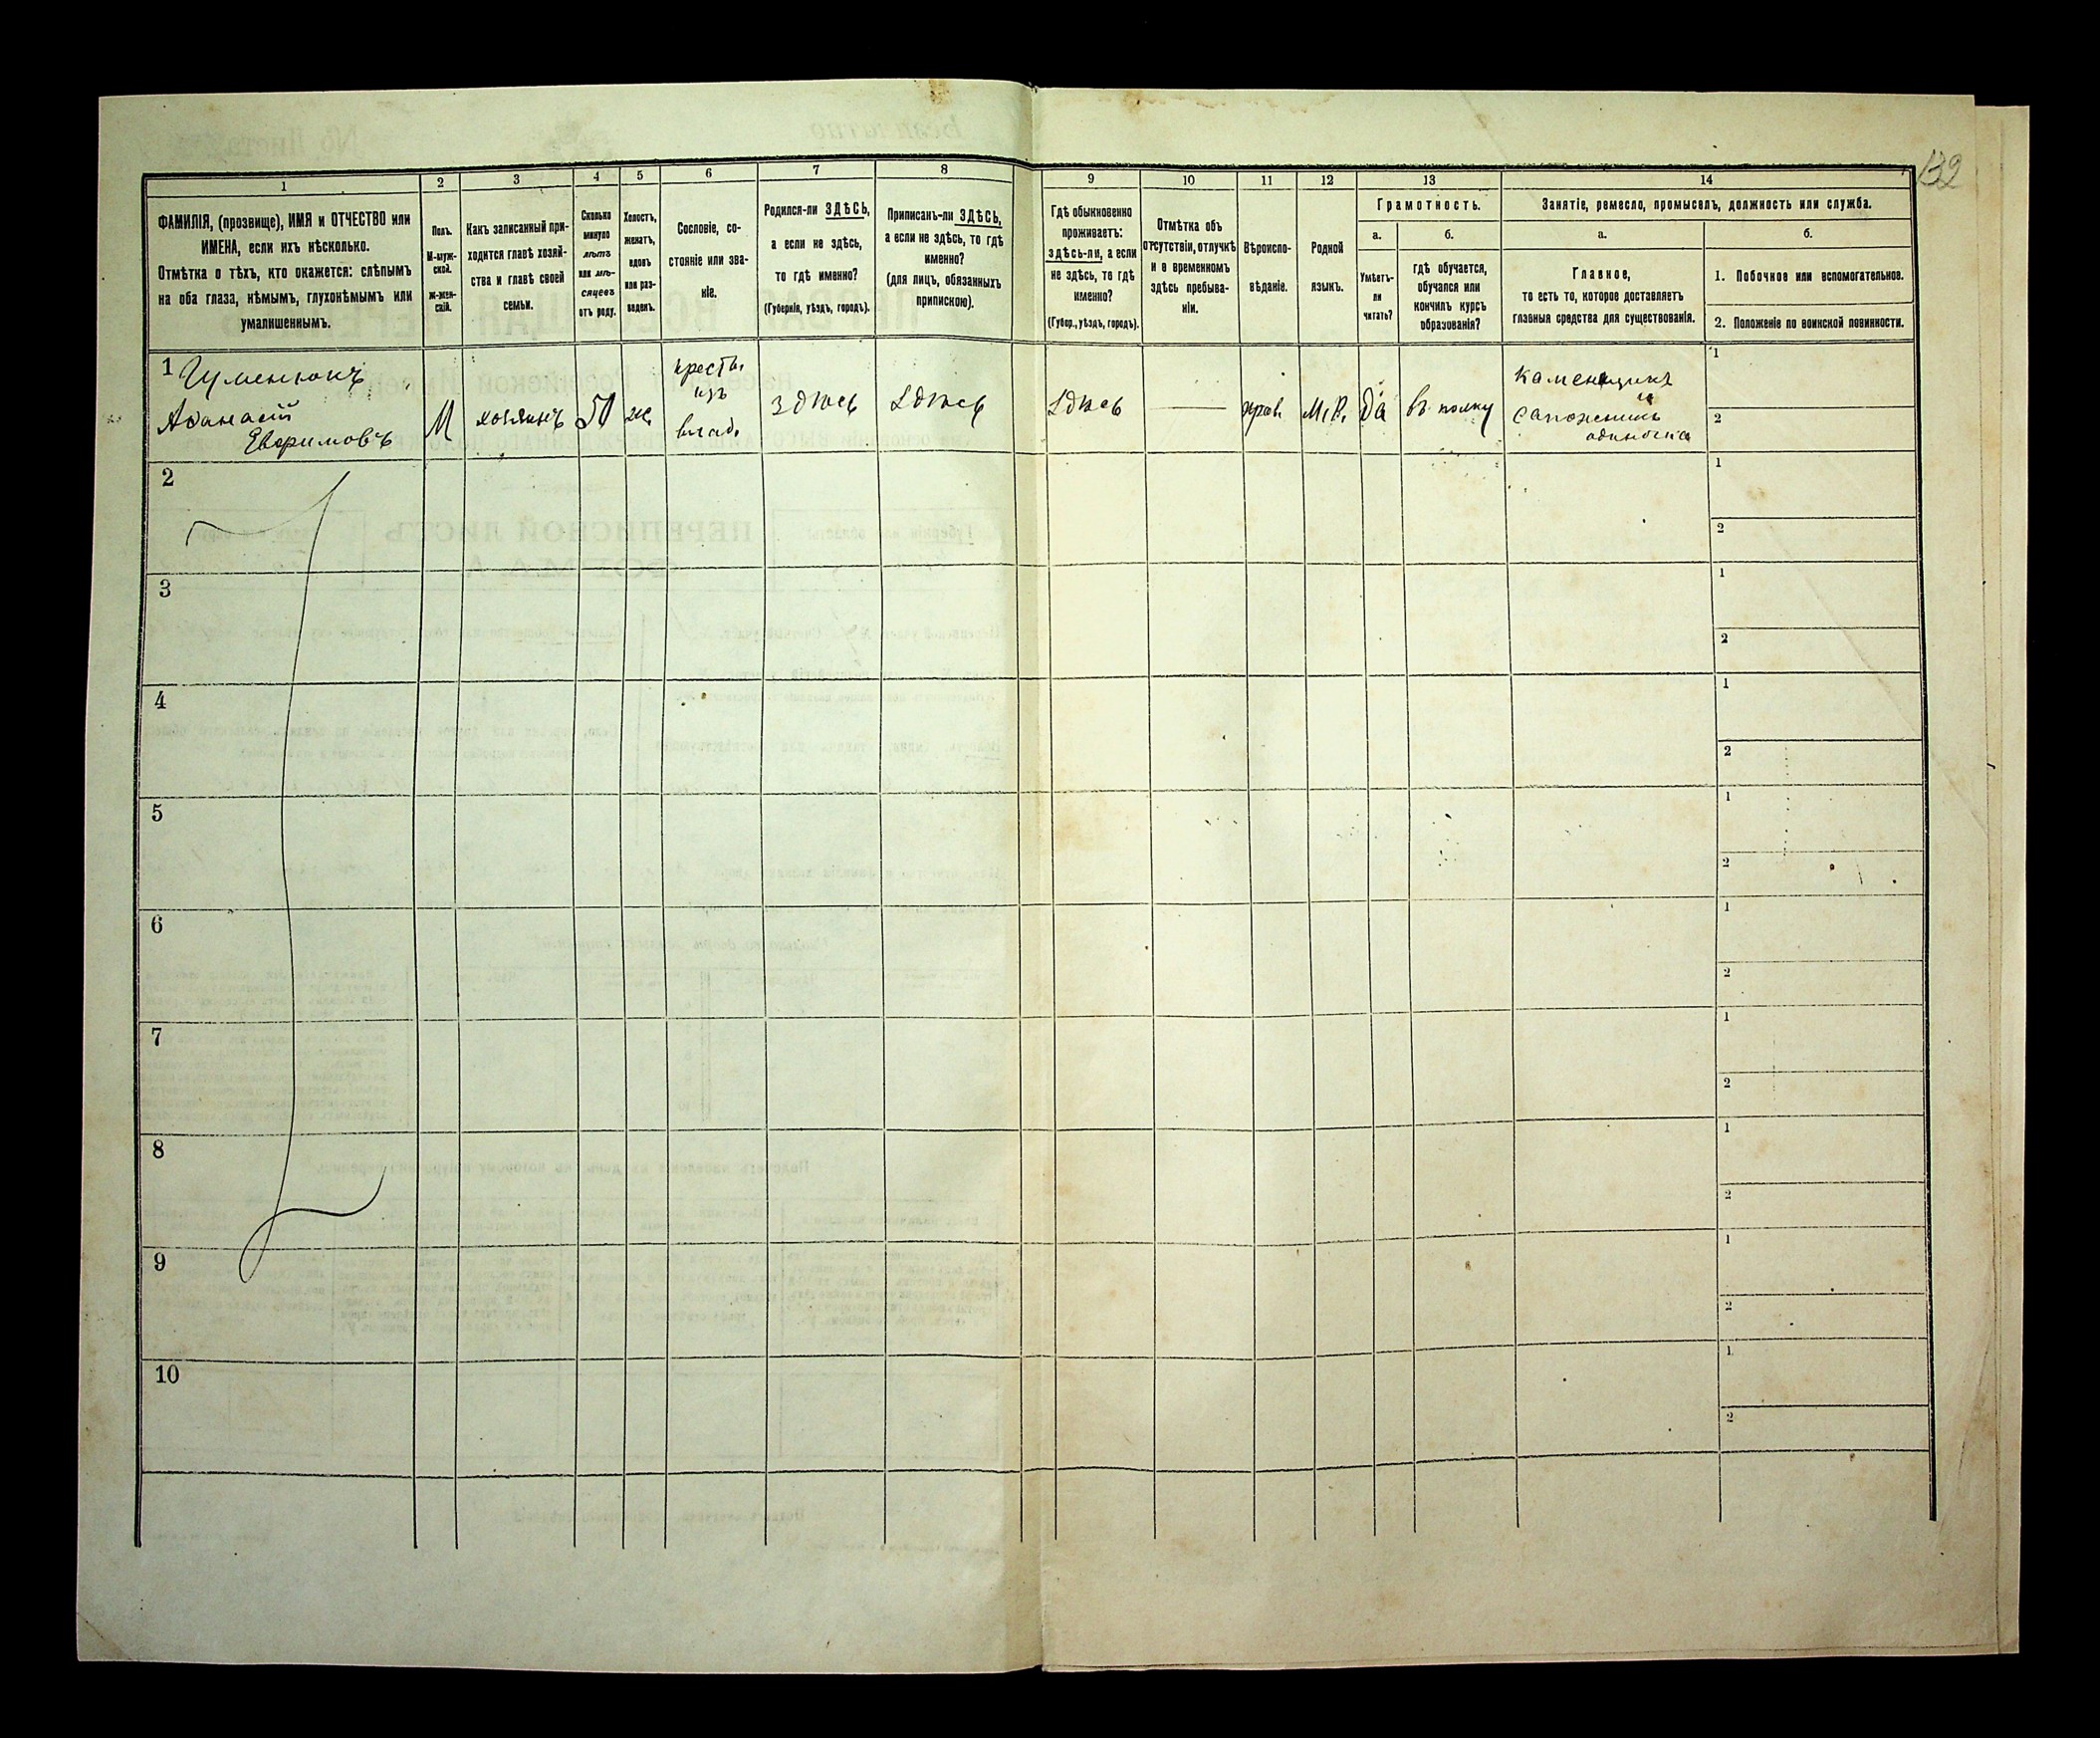 132
1
2
3
4
5
6
7
8
9
10
11
12
13
14
ФАМИЛІЯ, (прозвище), ИМЯ и ОТЧЕСТВО или
ИМЕНА, если ихъ нѣсколько.
Отмѣтка о тѣхъ, кто окажется: слѣпымъ
на оба глаза, нѣмымъ, глухонѣмымъ или
умалишеннымъ.
Полъ.
М-муж-
ской.
Ж-жен-
скій.
Какъ записанный при-
ходится главѣ хозяй-
ства и главѣ своей
семьи.
Сколько
минуло
лѣтъ
или мѣ-
сяцевъ
отъ роду.
Холостъ,
женатъ,
вдовъ
или раз-
веденъ.
Сословіе, со-
стояніе или зва-
ніе.
Родился-ли ЗДѢСЬ,
а если не здѣсь,
то гдѣ именно?
(Губернія, уѣздъ, городъ).
Приписанъ-ли ЗДѢСЬ,
а если не здѣсь, то гдѣ
именно?
(для лицъ, обязанныхъ
припискою).
Гдѣ обыкновенно
проживаетъ:
здѣсь-ли, а если
не здѣсь, то гдѣ
именно?
(Губер., уѣздъ, городъ).
Отмѣтка объ
отсутствіи, отлучкѣ
и о временномъ
здѣсь пребыва-
ніи.
Вѣроиспо-
вѣданіе.
Родной
языкъ.
Грамотность.
а.
Умѣетъ-
ли
читать?
б.
гдѣ обучается,
обучался или
кончилъ курсъ
образованія?
Занятіе, ремесло, промыселъ, должность или служба.
а.
Главное,
то есть то, которое доставляетъ
главныя средства для существованія.
б.
1. Побочное или вспомогательное.
2. Положеніе по воинской повинности.
1 Гуменюкъ
Аѳанасій
Евфимовъ
М
хозяинъ
50
же.
кресть.
изъ
влад.
здѣсь
здѣсь
здѣсь
прав.
М.Р.
да
въ полку
каменщикъ
и
сапожникъ
одиночка
1
2
2
1
2
3
1
2
4
1
2
5
1
2
6
1
2
7
1
2
8
1
2
9
1
2
10
1
2